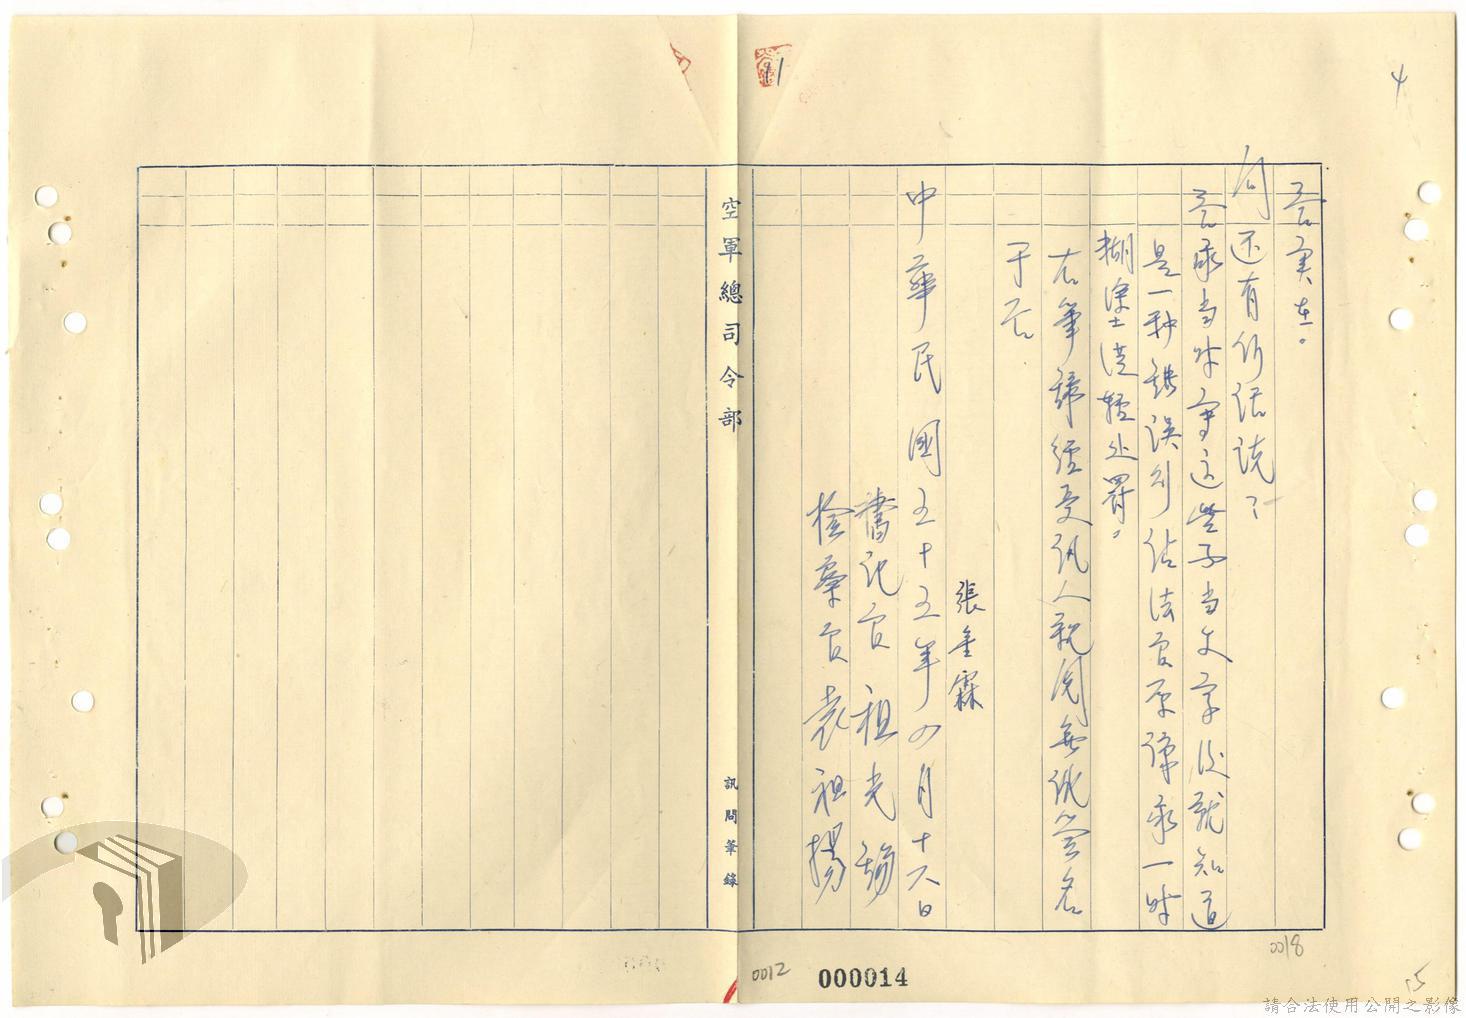 4
答實在。
問還有何話說？
答我当时寫这些子当文字後就知道
是一种錯誤到估法官原諒我一时
糊塗士從輕处罰。
右筆錄經受訊人親閱無訛签名
于后
張金霖
中華民國五十五年四月十六日
書記官祖光
檢察官袁祖揚
11
空軍總司令部
訊問筆錄
0012
000014
0018
15
請合法使用公開之影像